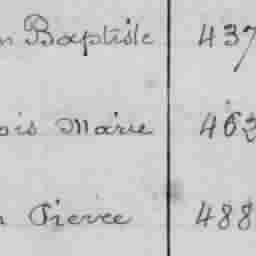 n Baptiste 437
ois Marie 463
n Pierre 488